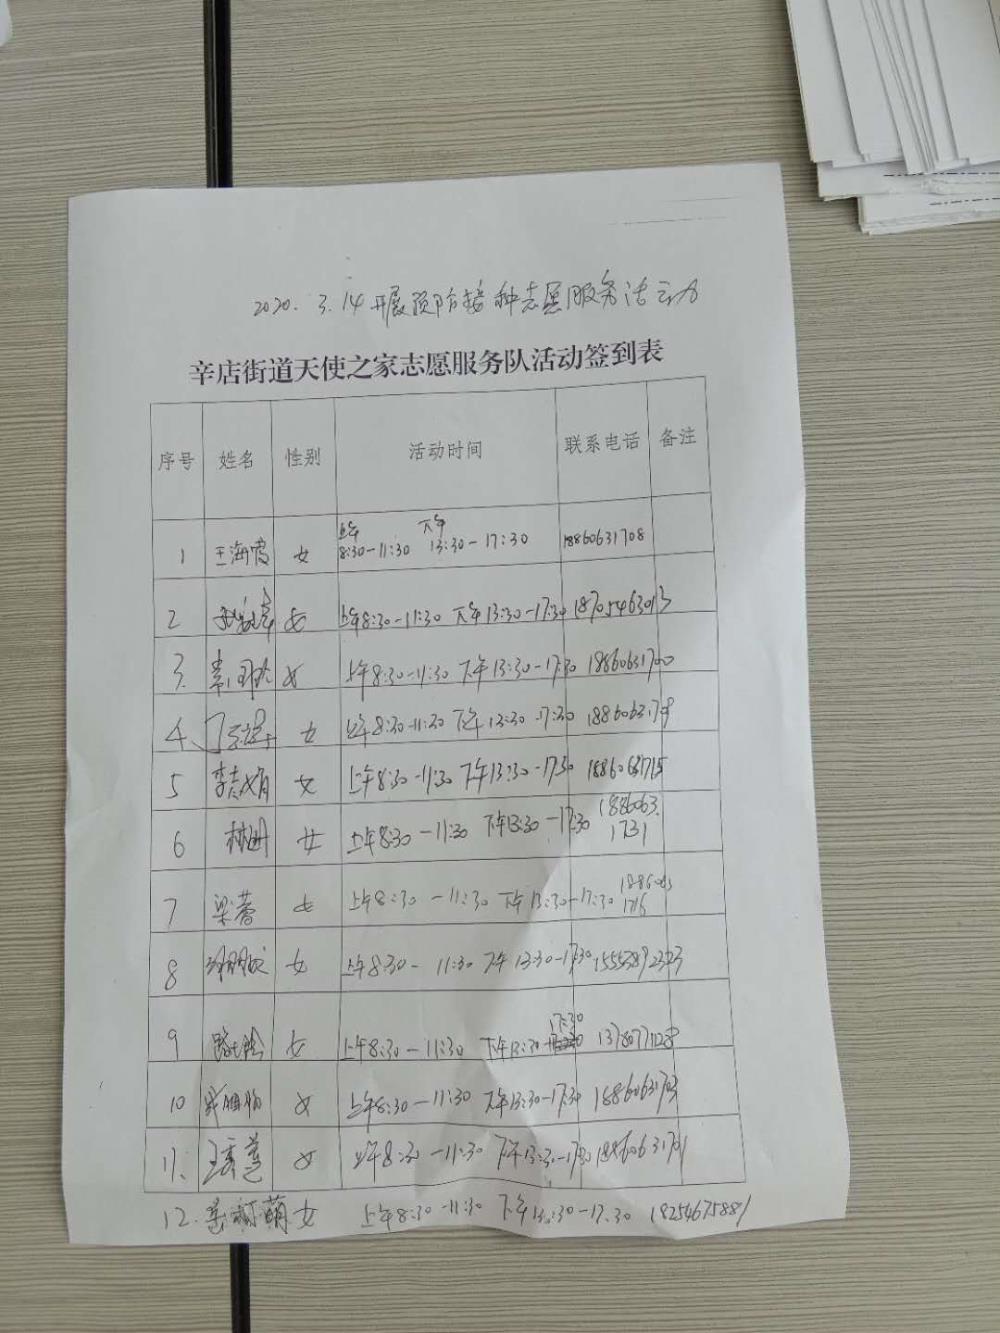 2020.3.14开展预防接种志愿服务活动
辛店街道天使之家志愿服务队活动签到表
序号 姓名 性别 活动时间 联系电话 备注
1 王海霞 女 上午8:30-11:30 下午13:30-17:30 18860631708
2 女 上午8:30-11:30 下午13:30-17:30 18705463013
3. 女 上午8:30-11:30 下午13:30-17:30 18860631700
4、 女 上午8:30-11:30 下午13:30-17:30
5 李志娟 女 上午8:30-11:30 下午13:30-17:30 18860631715
6 林田 女 上午8:30-11:30 下午13:30-17:30 18860631731
7 梁蕾 女 上午8:30-11:30 下午13:30-17:30
8 女 上午8:30-11:30 下午13:30-17:30 15553892323
9 女 上午8:30-11:30 下午13:30-17:30 13780771128
10 女 上午8:30-11:30 下午13:30-17:30 18860631703
11、 女 上午8:30-11:30 下午13:30-17:30 18860631701
12. 女 上午8:30-11:30 下午13:30-17:30 18254675881